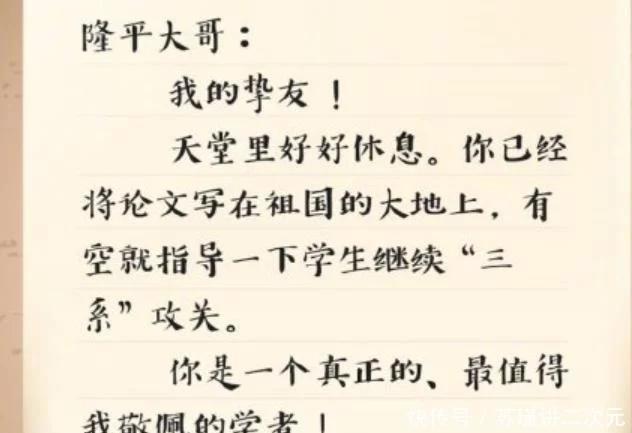 隆平大哥：
我的挚友！
天堂里好好休息。你已经
将论文写在祖国的大地上，有
空就指导一下学生继续“三
系”攻关。
你是一个真正的、最值得
我敬佩的学者！
快传号／苏瑾讲二次元